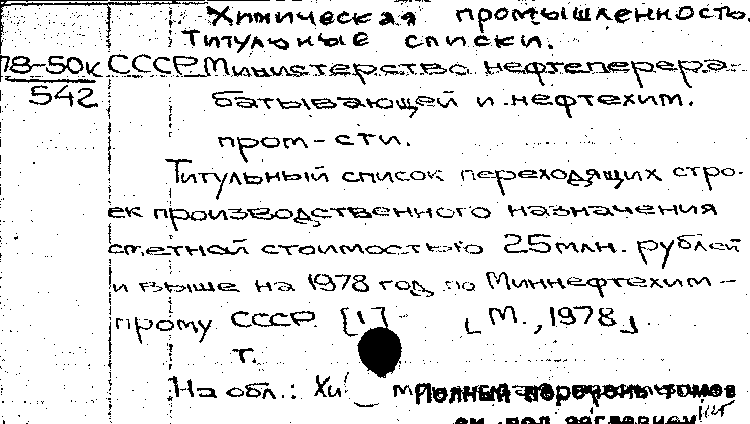 Химическая промышленность.
Титульные списки.
78-50к СССР. Министерство нефтеперера-
542 батывающей и нефтехим.
пром-сти.
Титульный список переходящих стро-
ек производственного назначения
сметной стоимостью 25 млн. рублей
и выше на 1978 год по Миннефтехим-
прому СССР. [1] - [М., 1978].
т.
На обл.: Хи
Полный перечень томов
см. под заглавием